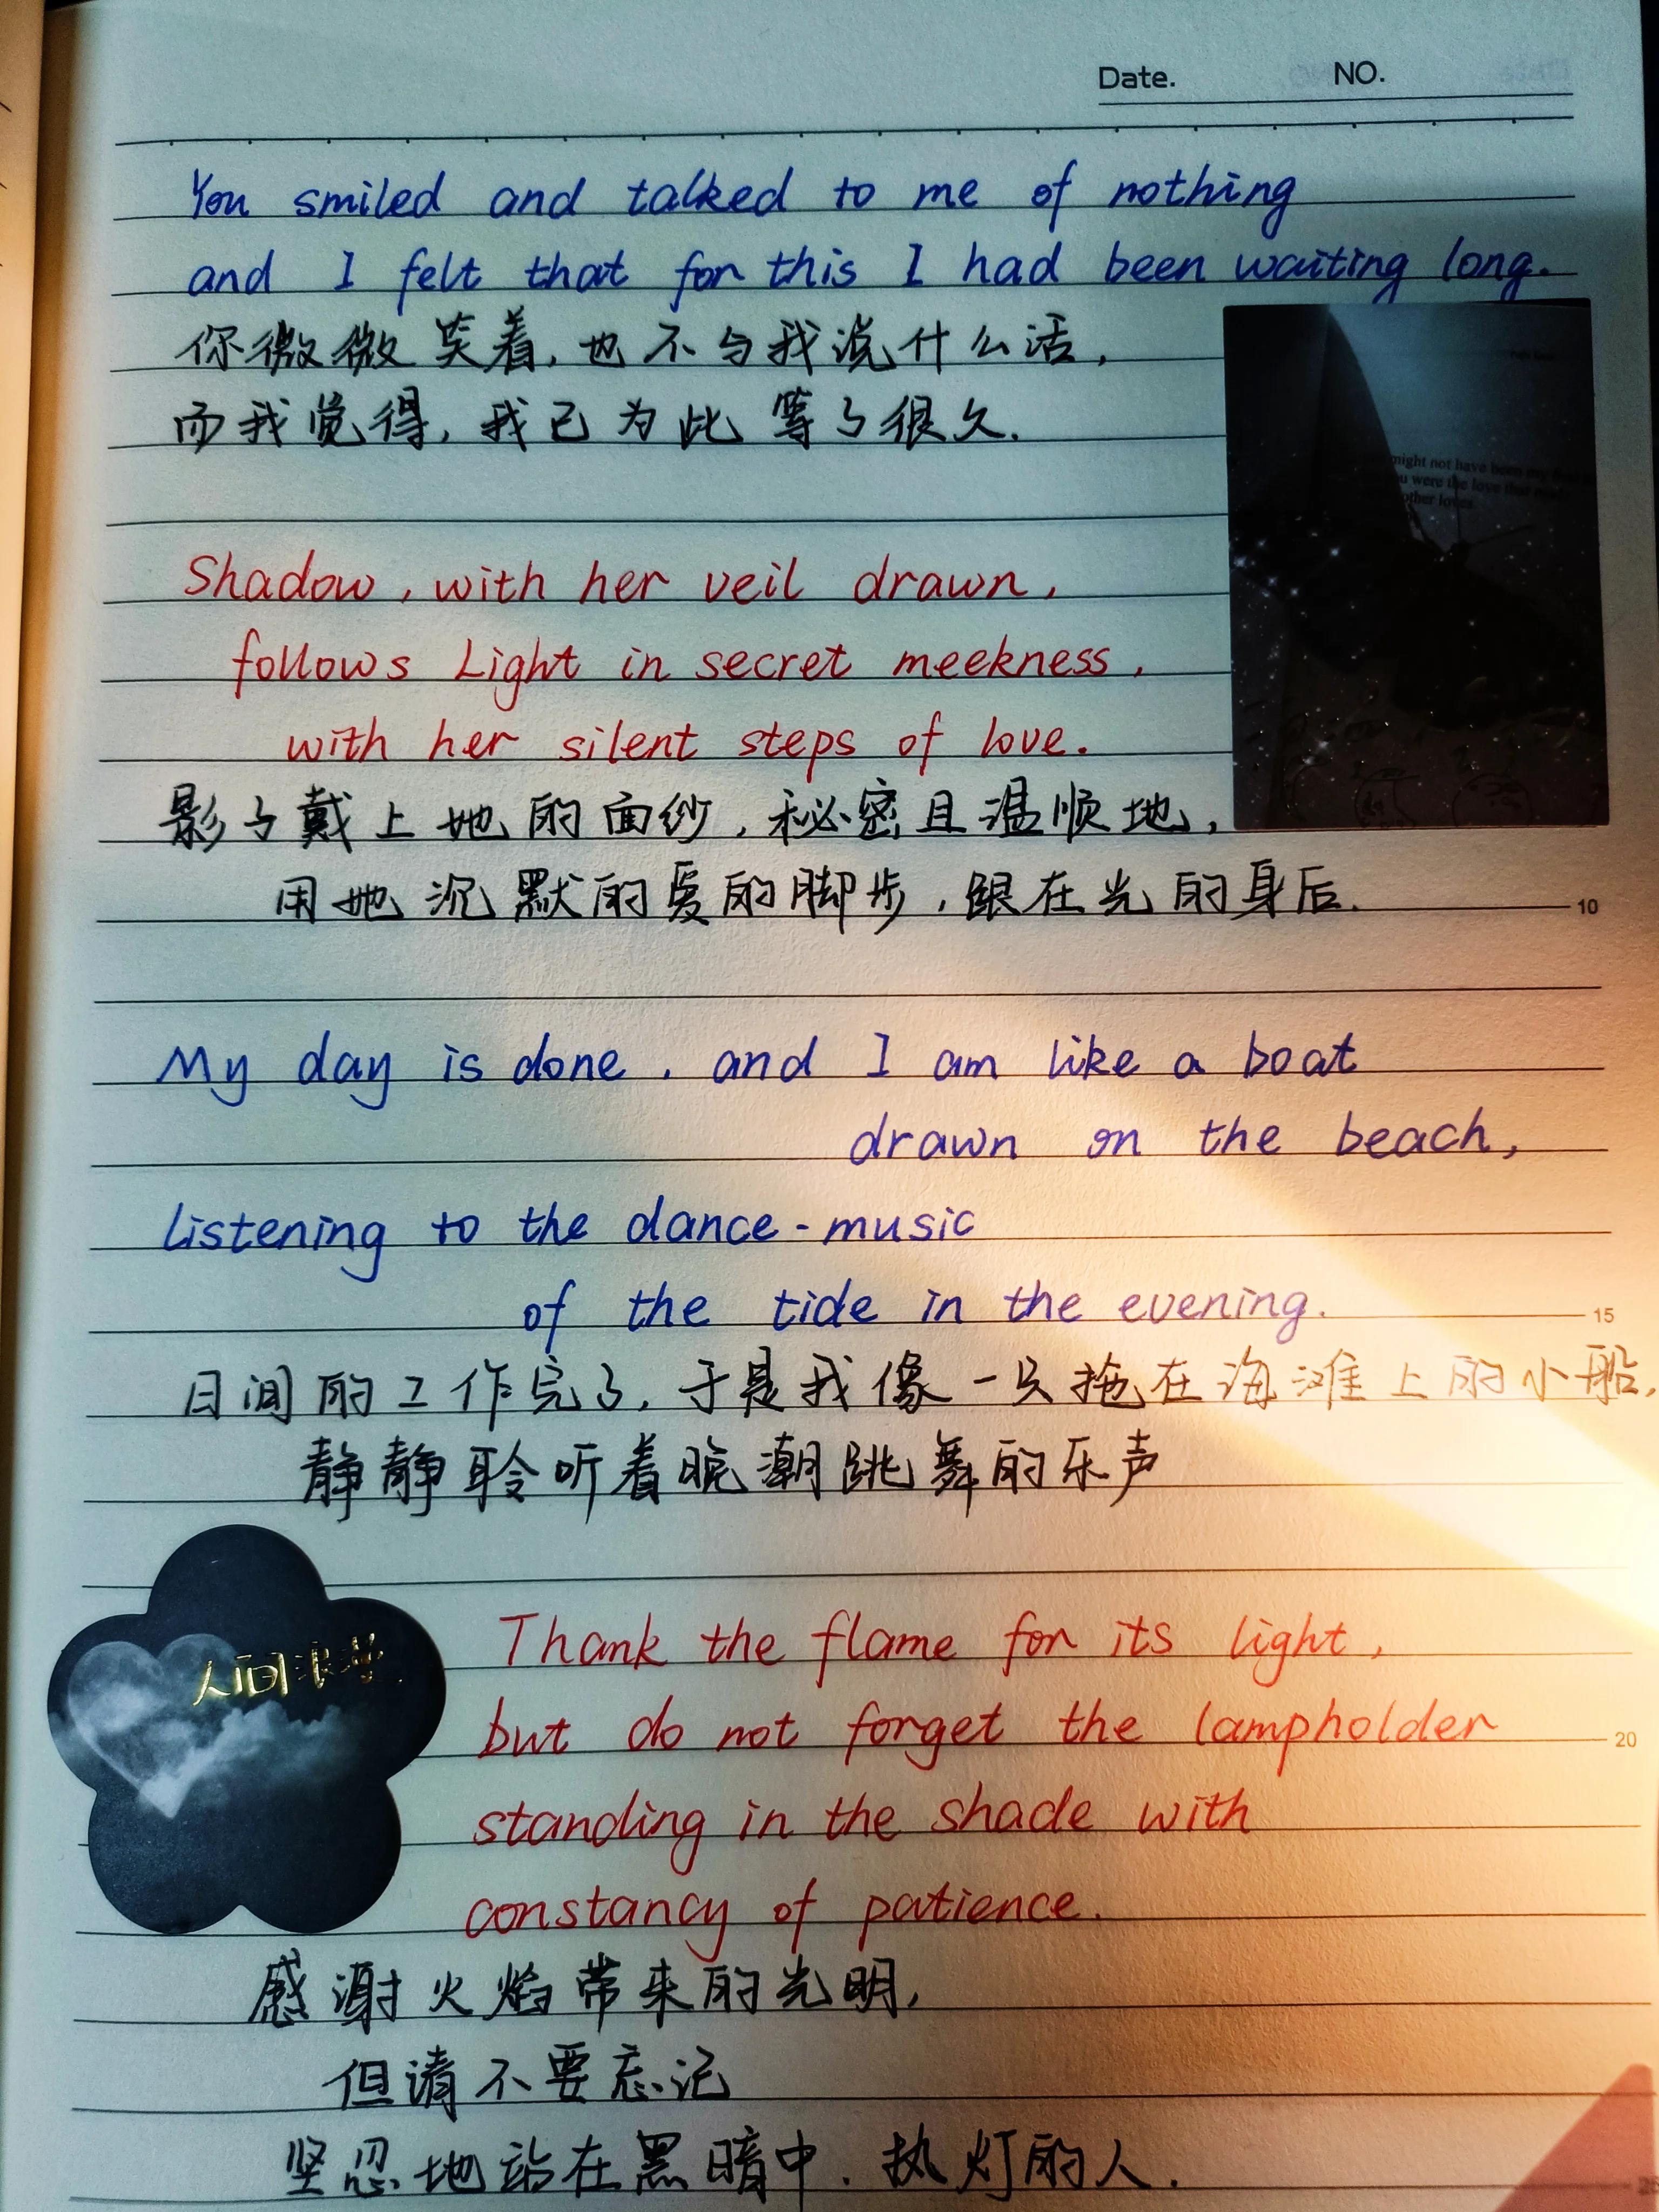 Date. NO.
You smiled and talked to me of nothing
and I felt that for this I had been waiting long.
你微微笑着,也不与我说什么话,
而我觉得,我已为此等了很久.
might not have been my
u were the love that
other loves.
Shadow, with her veil drawn,
follows Light in secret meekness,
with her silent steps of love.
影子戴上她的面纱,秘密且温顺地,
用她沉默的爱的脚步,跟在光的身后.
10
My day is done, and I am like a boat
drawn on the beach,
listening to the dance-music
of the tide in the evening.
15
日间的工作完了,于是我像一只拖在海滩上的小船,
静静聆听着晚潮跳舞的乐声
人间浪漫
Thank the flame for its light,
but do not forget the lampholder
20
standing in the shade with
constancy of patience.
感谢火焰带来的光明,
但请不要忘记
坚忍地站在黑暗中,执灯的人.